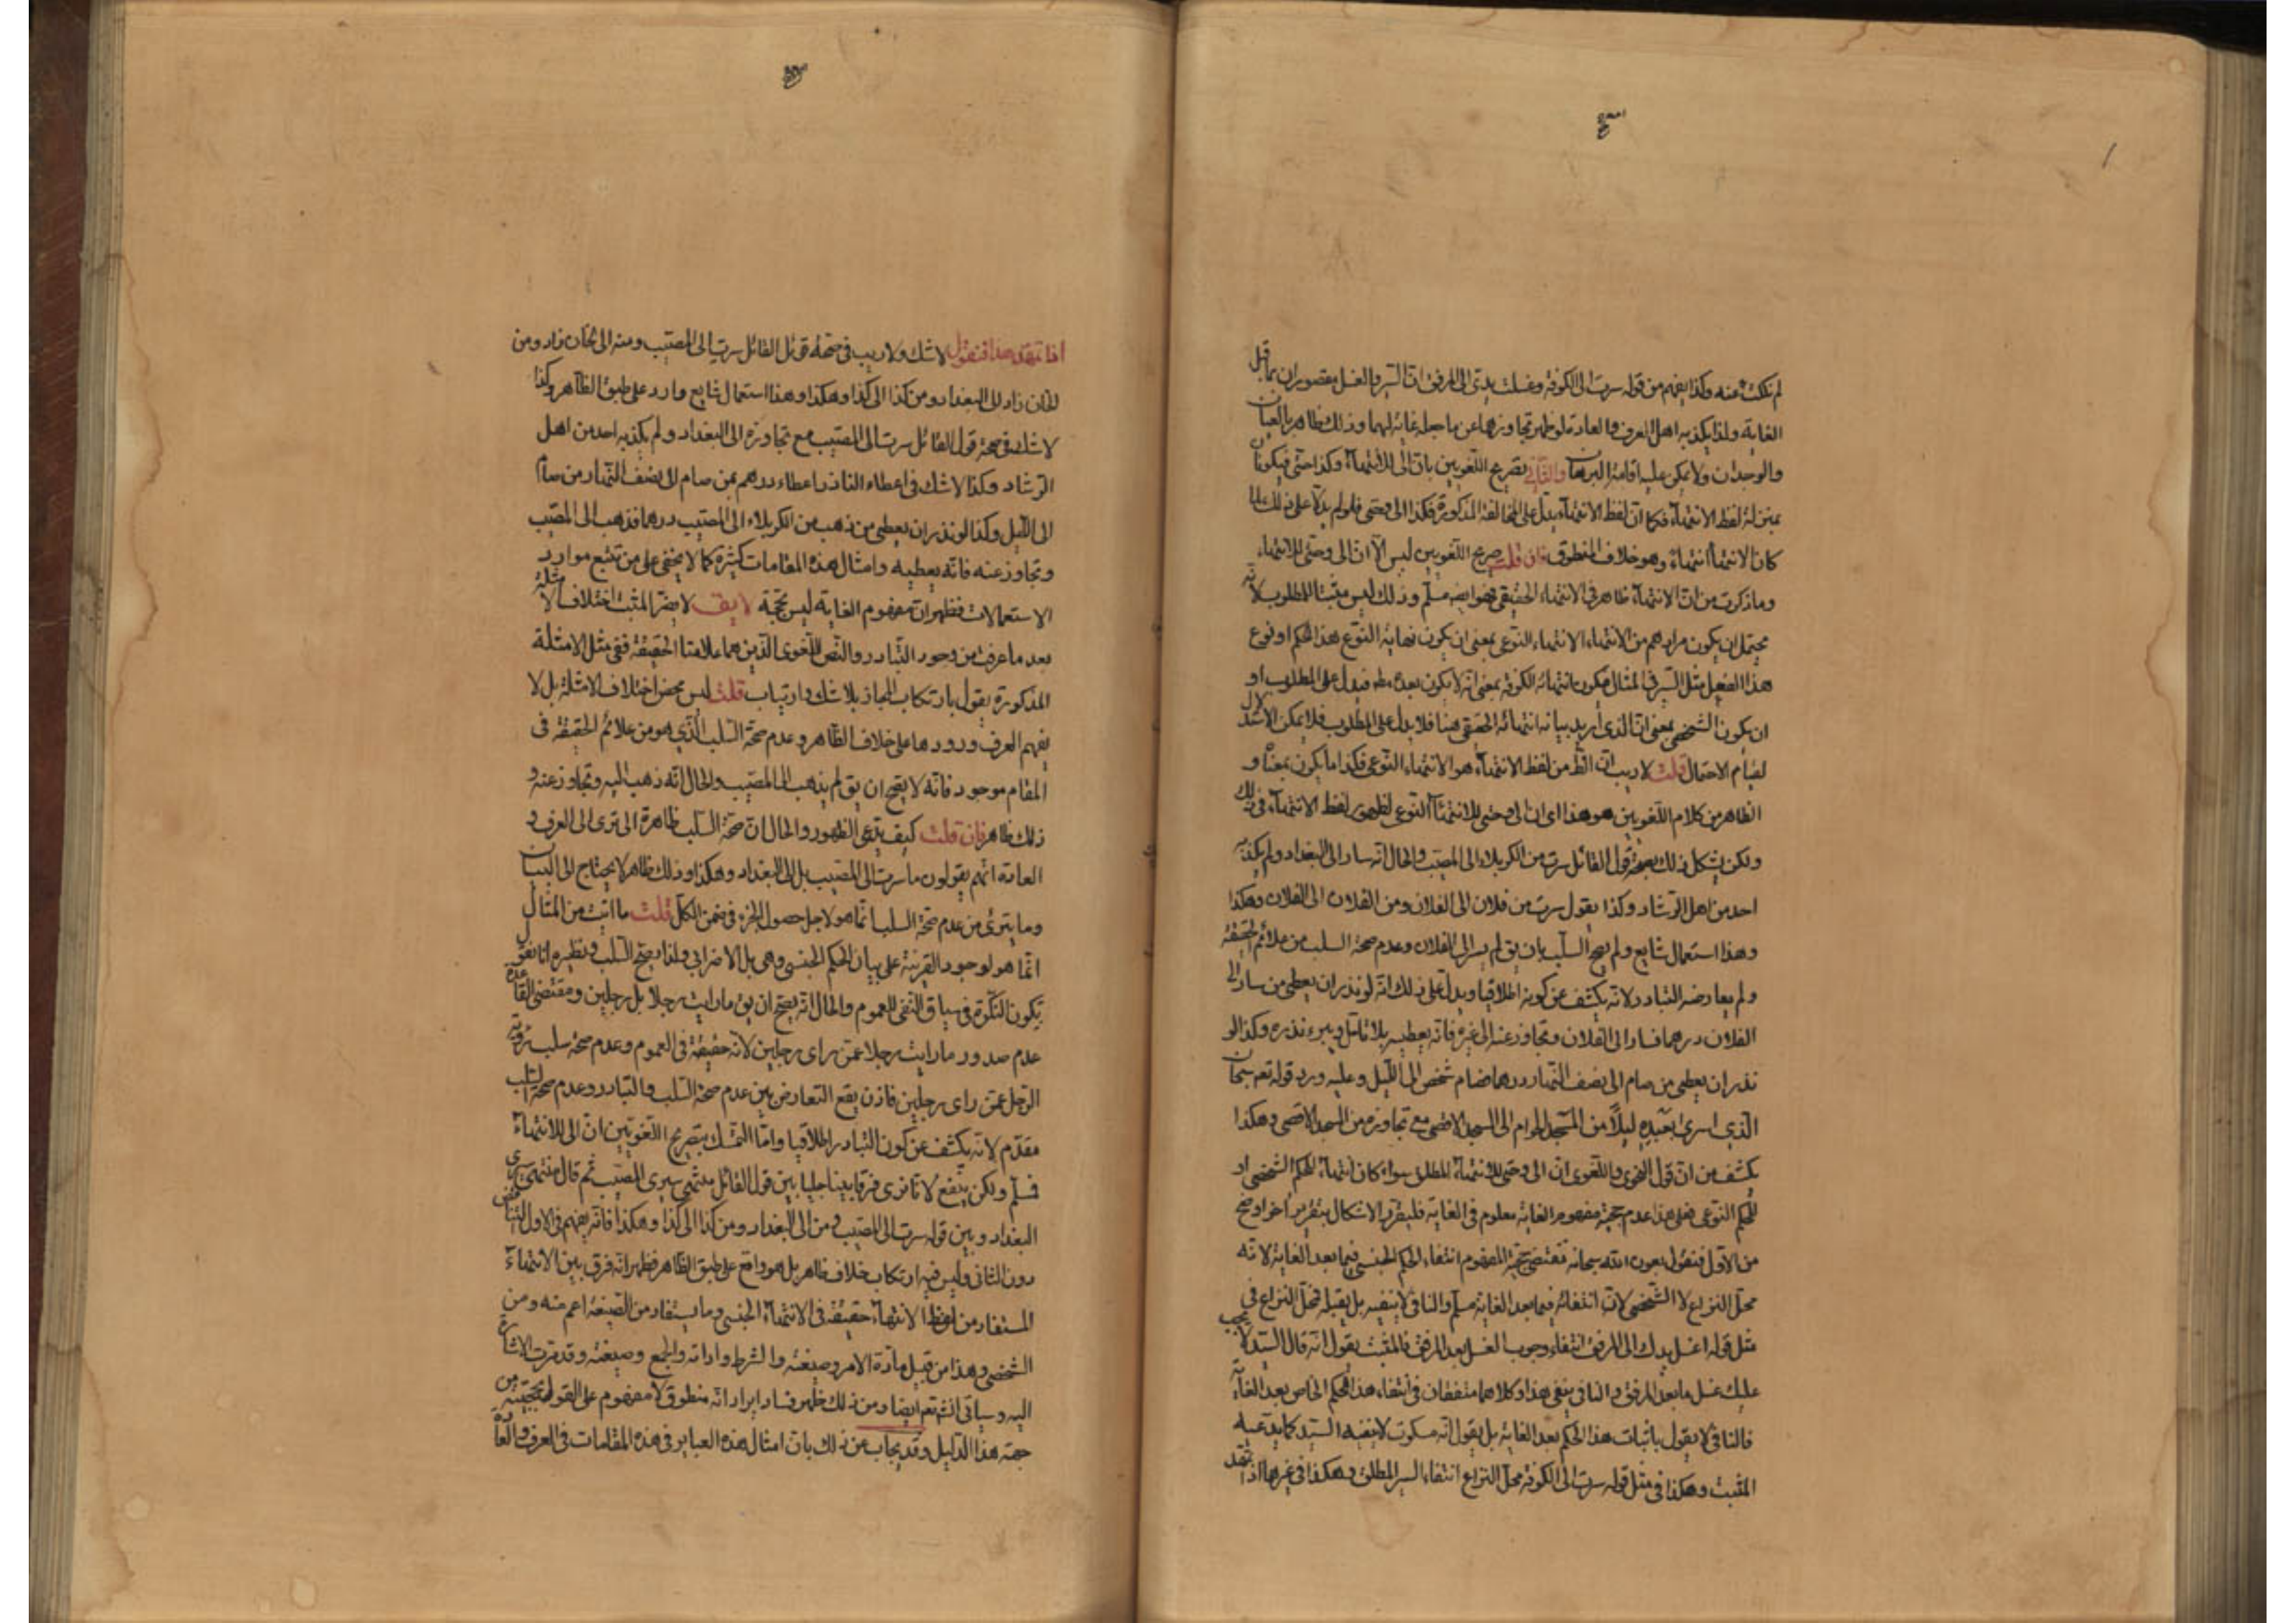 لم نكلت عنه وكذا يفهم من قوله سرت الى الكوفة وغسلت يدى الى المرفق ان السير والغسل مقصوران بما قبل
الغاية ولذا يكذبه اهل العرف والعادة لو ظهر تجاوزهما عن ما جعله غاية لهما وذلك ظاهر بالعيان
والوجدان ولا يمكن عليه اقامة البرهان والثانى تصريح اللغويين بان الى للانتهاء وكذا حتى فيكونان
بمنزلة لفظ الانتهاء فكما ان لفظ الانتهاء يدل على المخالفة المذكورة فكذا الى وحتى فلو لم يدلا على ذلك لما
كان الانتهاء انتهاء وهو خلاف المنطوق فان قلت صريح اللغويين ليس الا ان الى وحتى للانتهاء
وما ذكرت من ان الانتهاء ظاهر فى الانتهاء الحقيقى فهو ايضا مسلم وذلك ليس مثبتا للمطلوب لانه
يحتمل ان يكون مرادهم من الانتهاء الانتهاء النوعى بمعنى ان يكون نهاية النوع هذا الحكم او نوع
هذا الفعل مثل السير فى المثال فيكون انتهائه الكوفة بمعنى انه لا يكون بعده فيدل على المطلوب او
ان يكون الشخصى بمعنى ان الذى اريد بيانه انتهائه الحقيقى هنا فلا يدل على المطلوب فلا يمكن الاستدلال
لقيام الاحتمال قلت لا ريب ان الظ من لفظ الانتهاء هو الانتهاء النوعى فكذا ما يكون بمعناه و
الظاهر من كلام اللغويين هو هذا اى ان الى وحتى للانتهاء النوعى لظهور لفظ الانتهاء فى ذلك
ولكن يشكل ذلك بصحة قول القائل سرت من الكربلاء الى المصيب والحال انه سار الى البغداد ولم يكذبه
احد من اهل الرشاد وكذا يقول سرت من فلان الى الفلان ومن الفلان الى الفلان وهكذا
وهذا استعمال شايع ولم يصح السلب بان يق لم يسر الى الفلان وعدم صحة السلب من علائم الحقيقة
ولم يعارضه التبادر لانه يكشف عن كونه اطلاقيا ويدل على ذلك انه لو نذر ان يعطى من سار الى
الفلان درهما فسار الى الفلان وتجاوز عنه الى غيره فانه يعطيه بلا تامل ويبرء نذره وكذا لو
نذر ان يعطى من صام الى نصف النهار درهما فصام شخص الى الليل وعليه ورد قوله تعم سبحان
الذى اسرى بعبده ليلا من المسجد الحرام الى المسجد الاقصى مع تجاوزه من المسجد الاقصى وهكذا
يكشف من ان قول النحوى واللغوى ان الى وحتى للانتهاء المطلق سواء كان انتهاء الحكم الشخصى او
الحكم النوعى فعلى هذا عدم حجية مفهوم الغاية معلوم فى الغاية فليقرر الاشكال بتقرير اخر اوضح
من الاول فنقول بعون الله سبحانه مقتضى حجية المفهوم انتفاء الحكم الجنسى فيما بعد الغاية لانه
محل النزاع لا الشخصى لان انتفائه فيما بعد الغاية مسلم والنافى لا ينفيه بل يقبله فمحل النزاع فى
مثل قوله اغسل يدك الى المرفق انتفاء وجوب الغسل بعد المرفق فالمثبت يقول انه قال السيد لا يجب
عليك غسل ما بعد المرفق والنافى ينفى هذا وكلاهما متفقان فى انتفاء هذا الحكم الخاص بعد الغاية
فالنافى لا يقول باثبات هذا الحكم بعد الغاية بل يقول انه مسكوت لا ينفيه السيد كما يدعيه
المثبت وهكذا فى مثل قوله سرت الى الكوفة محل النزاع انتفاء السير المطلق وهكذا فى غيرها اذا تمهد
اذا تمهد هذا فنقول لا شك ولا ريب فى صحة قول القائل سرت الى المصيب ومنه الى الخان زاد ومن
الخان زاد الى البغداد ومن كذا الى كذا وهكذا وهذا استعمال شايع وارد على طبق الظاهر وكذا
لا شك فى صحة قول القائل سرت الى المصيب مع تجاوزه الى البغداد ولم يكذبه احد من اهل
الرشاد وكذا لا شك فى اعطاء الناذر اعطاء درهم بمن صام الى نصف النهار من صام
الى الليل وكذا لو نذر ان يعطى من ذهب من الكربلاء الى المصيب درهما فذهب الى المصيب
وتجاوز عنه فانه يعطيه وامثال هذه المقامات كثيرة كما لا يخفى على من تتبع موارد
الاستعمالات فظهر ان مفهوم الغاية ليس بحجة لا يق لا يضر المثبت اختلاف الامثلة
بعد ما عرفت من وجود التبادر والنص اللغوى الذين هما علامتا الحقيقة ففى مثل الامثلة
المذكورة يقول بارتكاب المجاز بلا شك وارتياب قلت ليس محض اختلاف الامثلة بل لا
يفهم العرف ورودها على خلاف الظاهر وعدم صحة السلب الذى هو من علائم الحقيقة فى
المقام موجود فانه لا يصح ان يق لم يذهب الى المصيب والحال انه ذهب اليه وتجاوز عنه و
ذلك ظاهر فان قلت كيف تدعى الظهور والحال ان صحة السلب ظاهرة الا ترى الى العرف و
العادة انهم يقولون ما سرت الى المصيب بل الى البغداد وهكذا وذلك ظاهر لا يحتاج الى البيان
وما يترئ من عدم صحة السلب انما هو لاجل حصول الجزء فى ضمن الكل قلت ما اتيت من المثال
انما هو لوجود القرينة على بيان الحكم الجنسى وهى بل الاضرابى ولذا يصح السلب ونظيره انا نقول
بكون النكرة فى سياق النفى للعموم والحال انه يصح ان يق ما رايت رجلا بل رجلين ومقتضى القاعدة
عدم صدور ما رايت رجلا عمن راى رجلين لانه حقيقة فى العموم وعدم صحة سلب رؤية
الرجل عمن راى رجلين فاذن يقع التعارض بين عدم صحة السلب والتبادر وعدم صحة السلب
مقدم لانه يكشف عن كون التبادر اطلاقيا واما التمسك بتصريح اللغويين ان الى للانتهاء
فمسلم ولكن ينفع لانا نرى فرقا بينا جليا بين قول القائل منتهى سيرى المصيب ثم قال منتهى سيرى
البغداد وبين قوله سرت الى المصيب ومن الى البغداد ومن كذا الى كذا وهكذا فانه يفهم فى الاول التناقض
دون الثانى وليس فيه ارتكاب خلاف ظاهر بل هو واقع على طبق الظاهر فظهر انه فرق بين الانتهاء
المستفاد من لفظ الانتهاء حقيقة فى الانتهاء الجنسى وما يستفاد من الصيغة اعم منه ومن
الشخصى وهذا من قبيل مادة الامر وصيغته والشرط واداته والجمع وصيغته وقد مرت الاشارة
اليه وسياتى انشتعم ايضا ومن ذلك ظهر فساد ايراد انه منطوق لا مفهوم على القول بحجيته من
جهة هذا الدليل وقد يجاب عن ذلك بان امثال هذه العباير فى هذه المقامات فى العرف والعادة